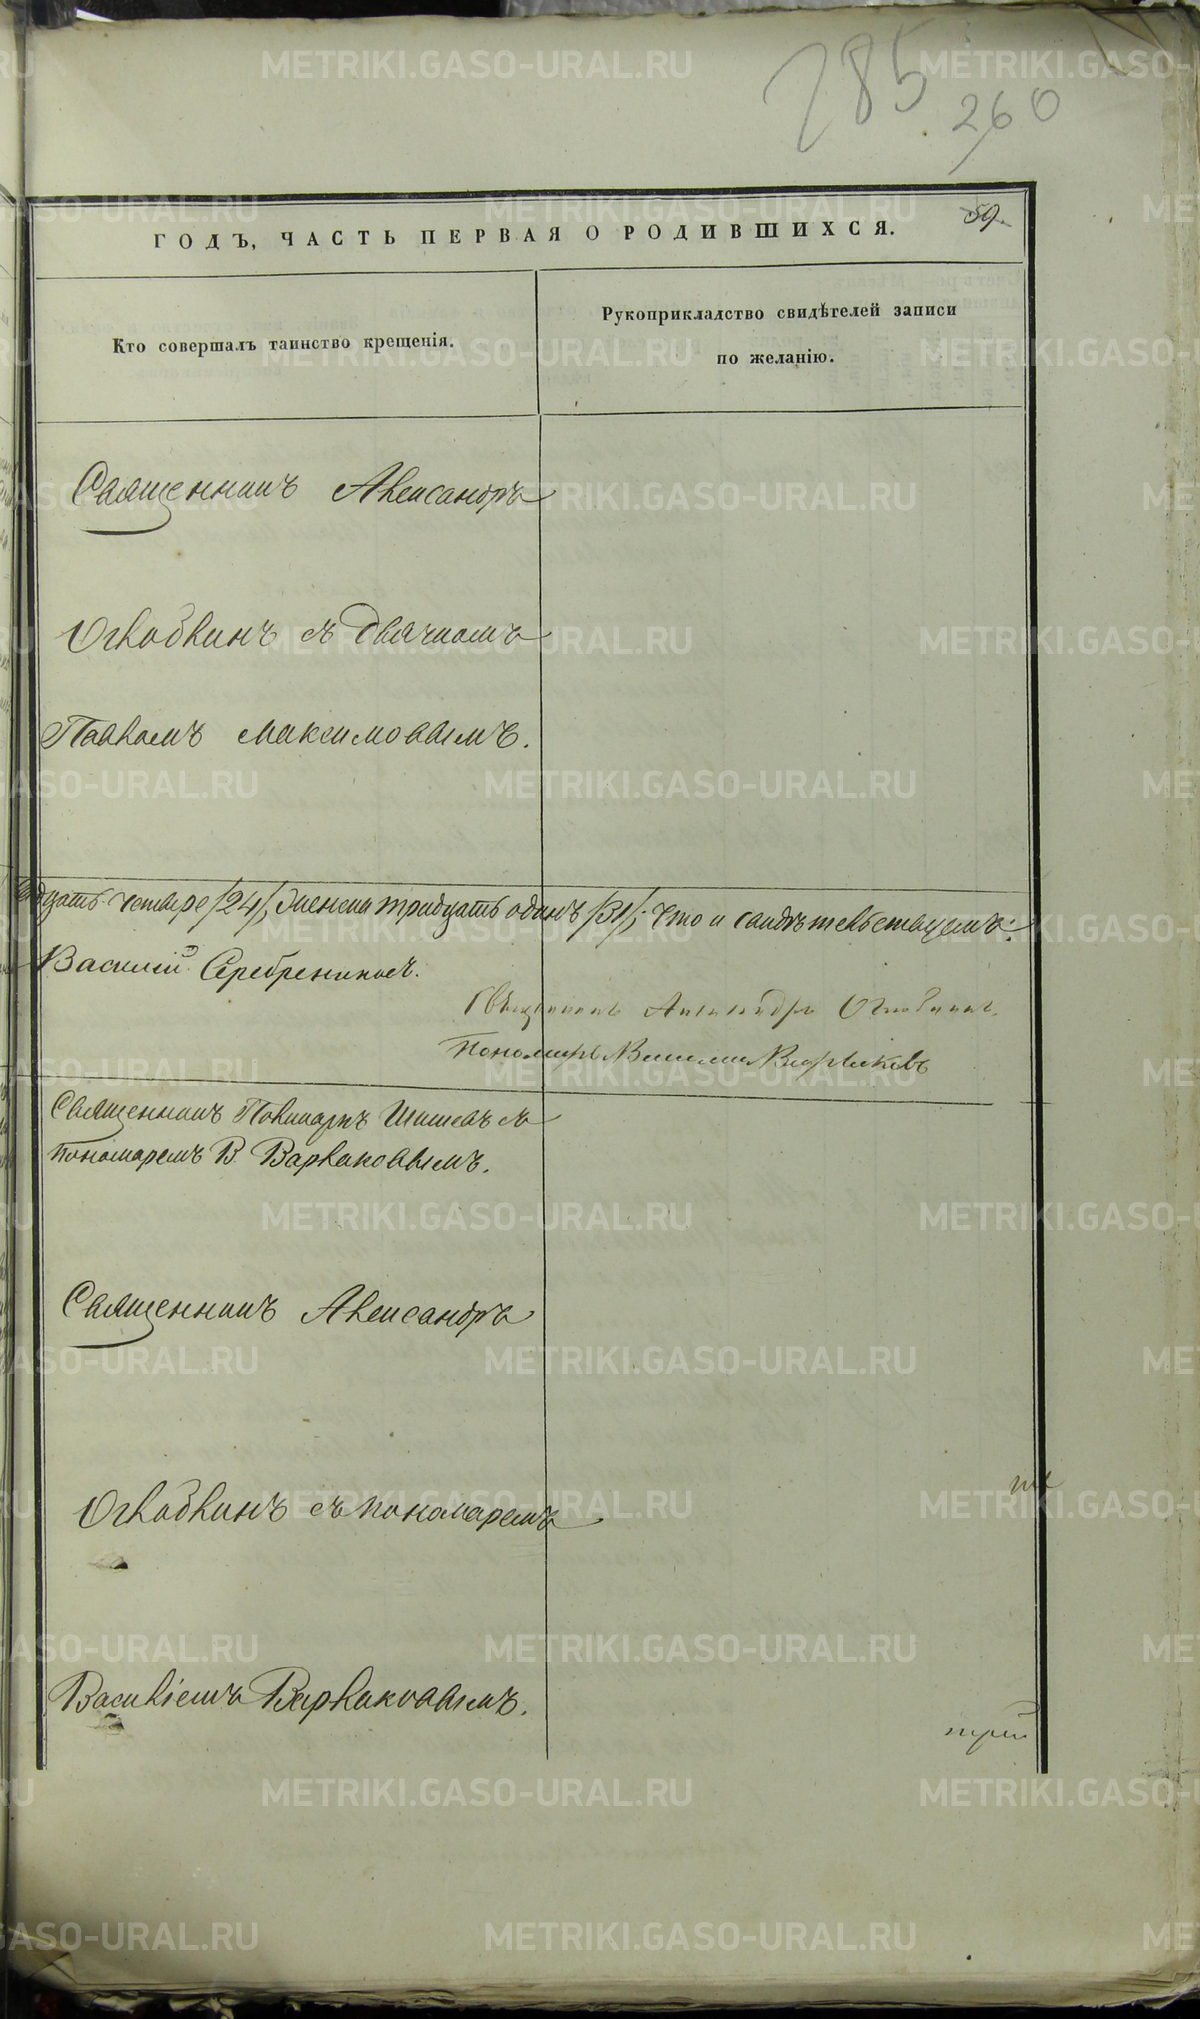 285
260
59.
ГОДЪ, ЧАСТЬ ПЕРВАЯ О РОДИВШИХСЯ.
Кто совершалъ таинство крещенія.
Рукоприкладство свидѣтелей записи
по желанію.
Священникъ Александръ
Оглоблинъ съ дьячкомъ
Павломъ Максимовымъ.
дцать четыре /24/, женска тридцать одинъ /31/; что и свидѣтельствуемъ:
Василій Серебрениковъ.
Священникъ Александръ Оглоблинъ.
Пономарь Василій Варлаковъ
Священникъ Поликарпъ Шишевъ съ
пономаремъ В. Варлаковымъ.
Священникъ Александръ
Оглоблинъ съ пономаремъ
Василіемъ Варлаковымъ.
METRIKI.GASO-URAL.RU